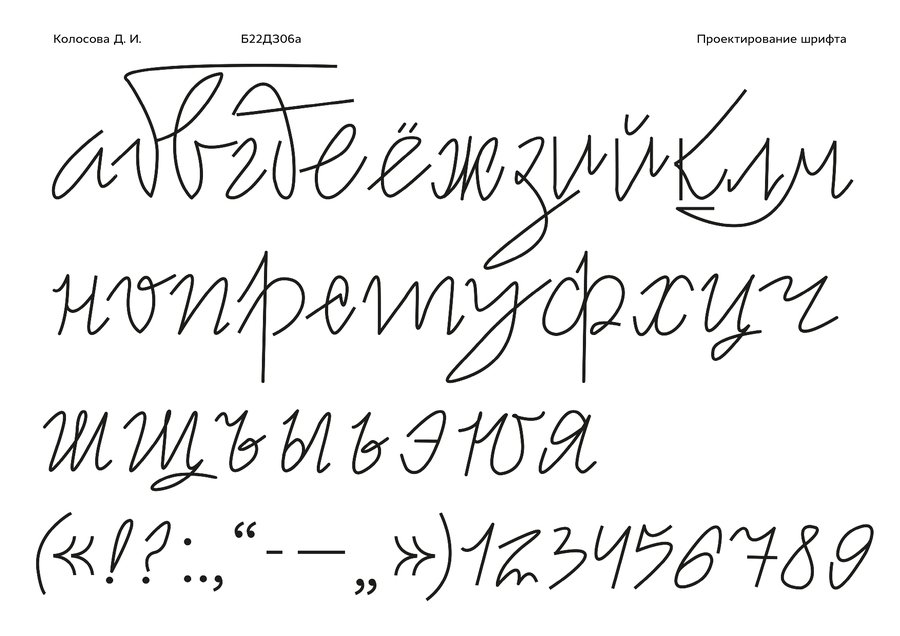 Колосова Д. И. Б22Д306а Проектирование шрифта
абвгдеёжзийклм
нопрстуфхцч
шщъыьэюя
(«!?:.,“-—„»)123456789